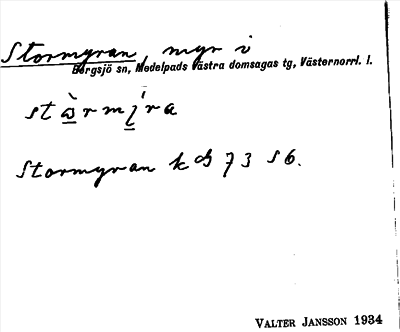 Stormyran, myr i
Bergsjö sn, Medelpads Västra domsagas tg, Västernorrl. l.
Stormyran k 73 s6.
VALTER JANSSON 1934